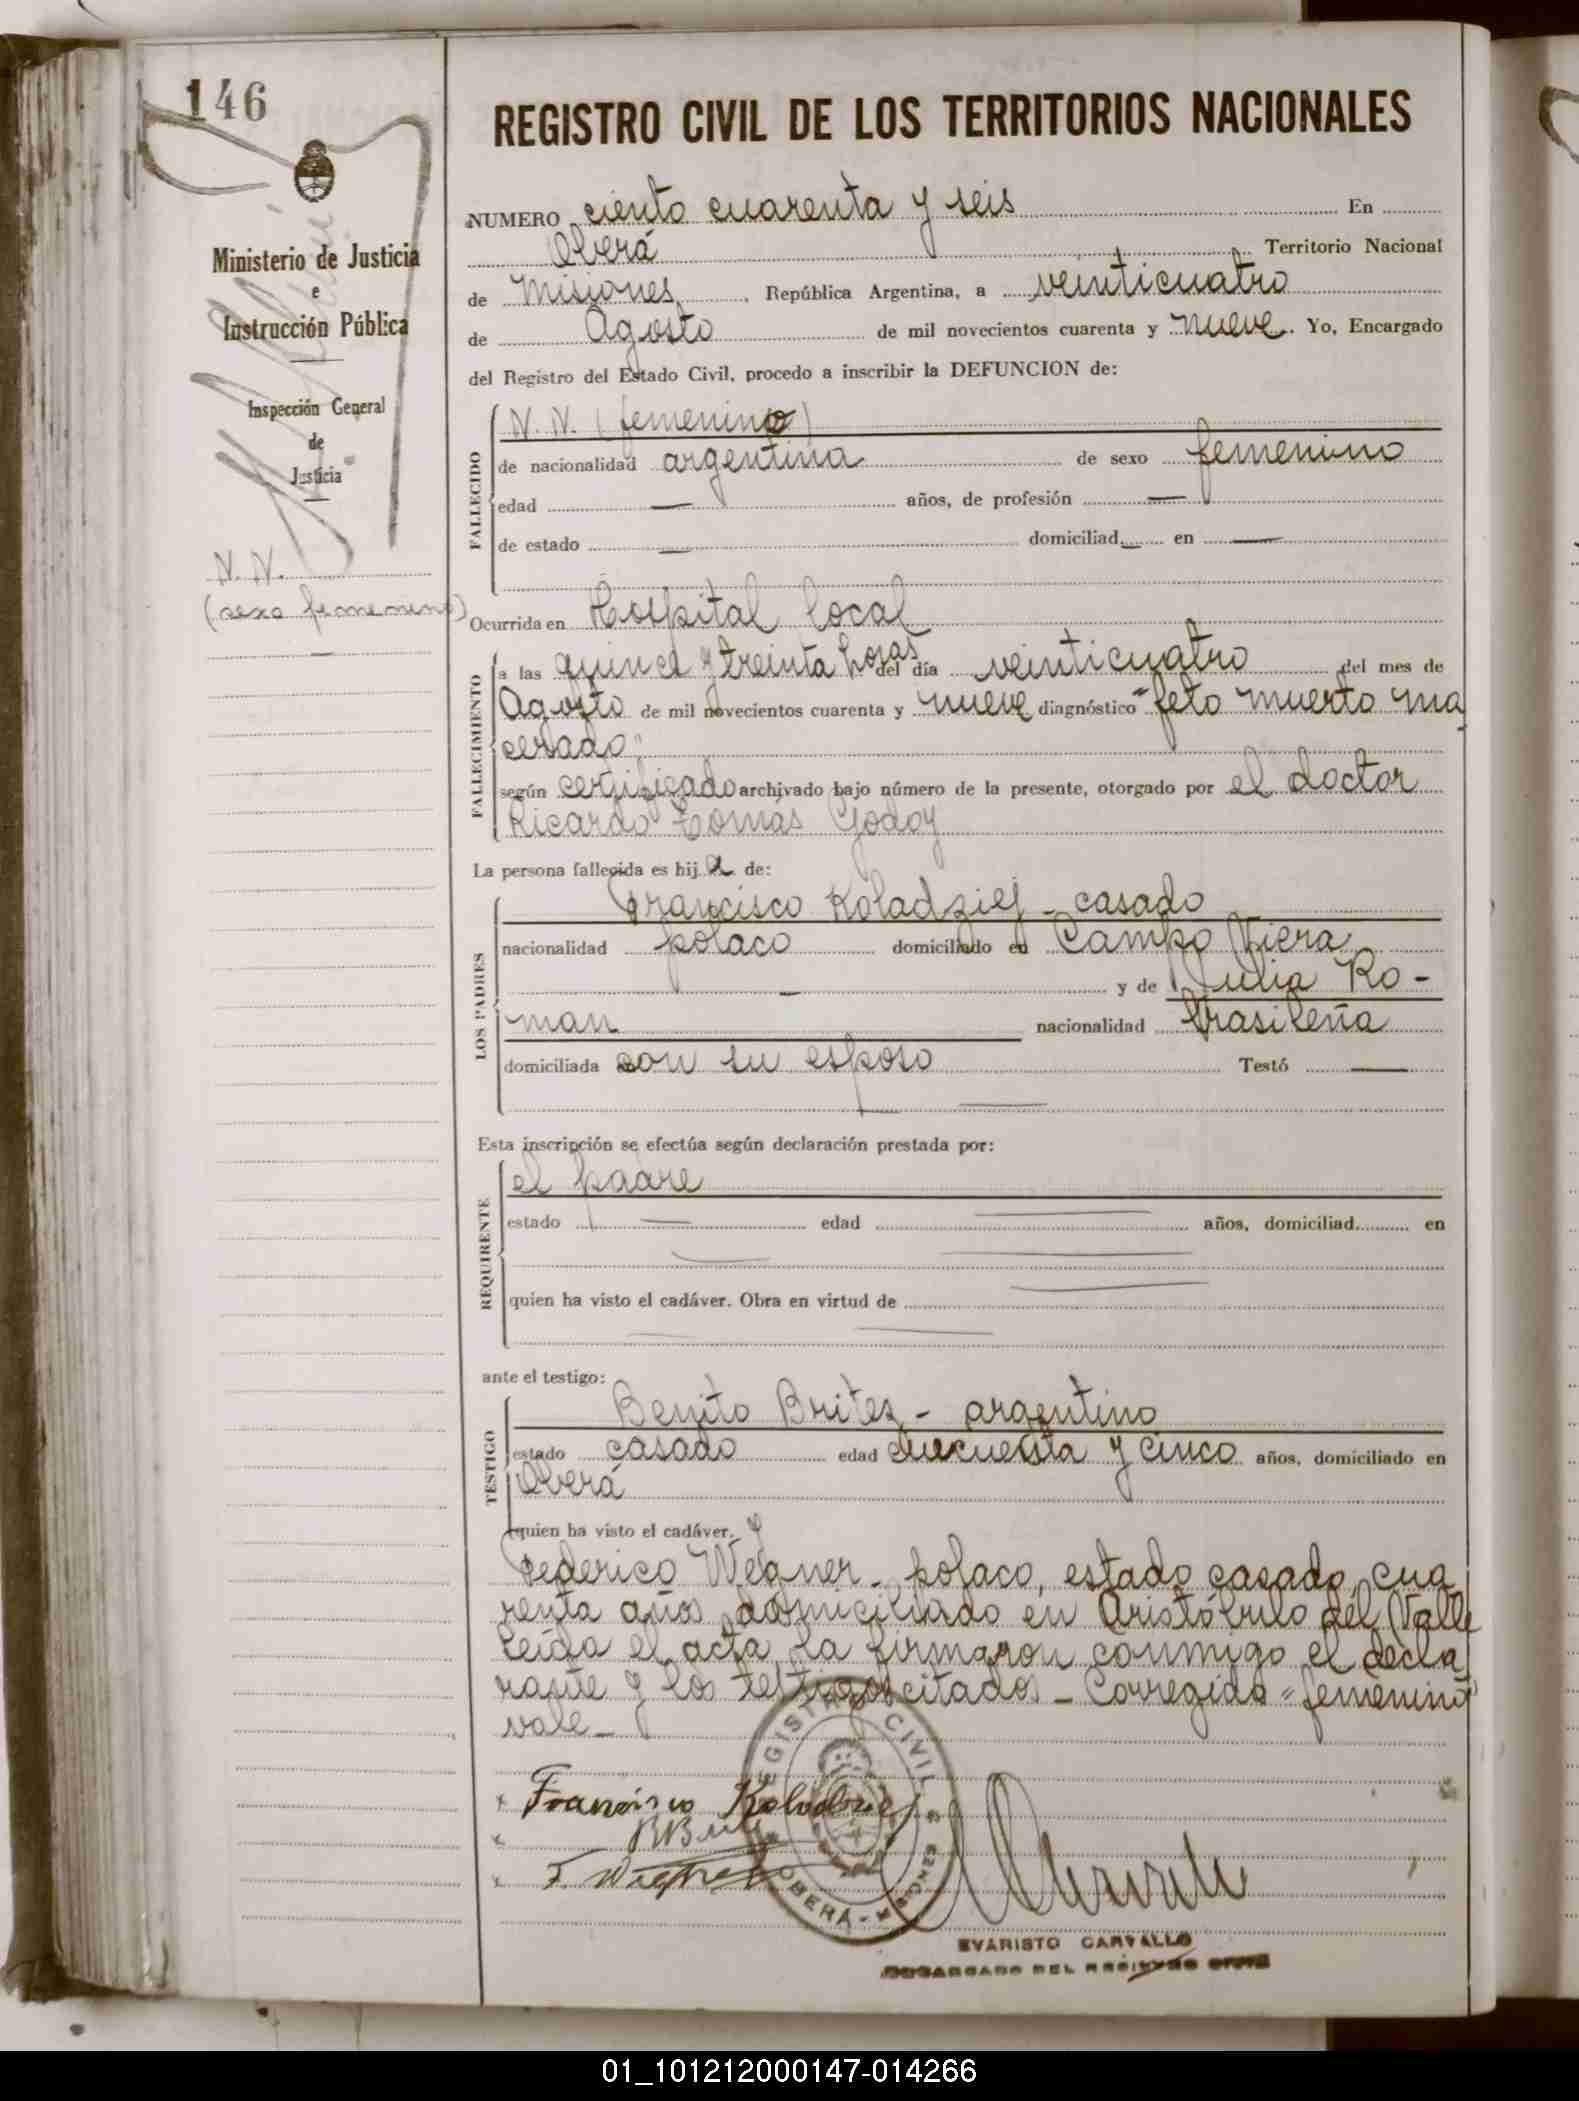 146
REGISTRO CIVIL DE LOS TERRITORIOS NACIONALES
Ministerio de Justicia
e
Instrucción Pública
Inspección General
de
Justicia
N. N.
(sexo femenino)
NUMERO ciento cuarenta y seis En
Oberá Territorio Nacional
de Misiones, República Argentina, a veinticuatro
de Agosto de mil novecientos cuarenta y nueve. Yo, Encargado
del Registro del Estado Civil, procedo a inscribir la DEFUNCION de:
FALLECIDO
N. N. (femenino)
de nacionalidad argentina de sexo femenino
edad — años, de profesión —
de estado — domiciliad — en —
Ocurrida en Hospital local
FALLECIMIENTO
a las quince y treinta horas del día veinticuatro del mes de
Agosto de mil novecientos cuarenta y nueve diagnóstico "feto muerto ma
cerado"
según certificado archivado bajo número de la presente, otorgado por el doctor
Ricardo Tomás Godoy
La persona fallecida es hija de:
LOS PADRES
Francisco Koladziej - casado
nacionalidad polaco domiciliado en Campo Viera
— y de Julia Ro-
man nacionalidad brasileña
domiciliada con su esposo Testó —
Esta inscripción se efectúa según declaración prestada por:
REQUIRENTE
el padre
estado — edad — años, domiciliad en
quien ha visto el cadáver. Obra en virtud de —
ante el testigo:
TESTIGO
Benito Britez - argentino
estado casado edad cincuenta y cinco años, domiciliado en
Oberá
quien ha visto el cadáver. y
Federico Wegner - polaco, estado casado, cua
renta años domiciliado en Aristóbulo del Valle
Leída el acta, la firmaron conmigo el decla
rante y los testigos citados - Corregido "femenino"
vale -
REGISTRO CIVIL
OBERA
x Francisco Kolodziej
x BBritez
x F. Wegner
EVARISTO CARVALLO
ENCARGADO DEL REGISTRO CIVIL
01_101212000147-014266